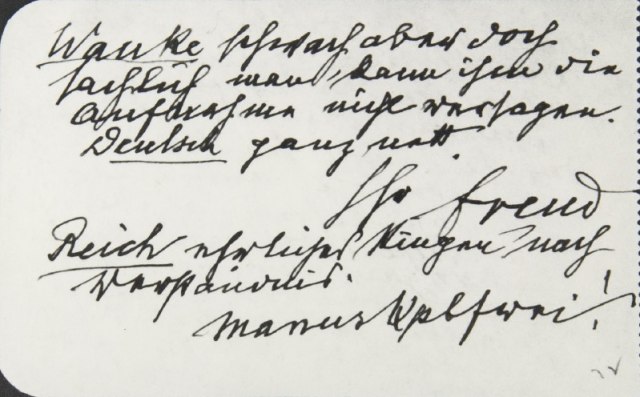 Wanke schwach aber doch
sachlich man kann ihm die
Aufnahme nicht versagen.
Deutsch ganz nett.
Ihr Freud
Reich ehrliches Ringen nach
Verständnis.